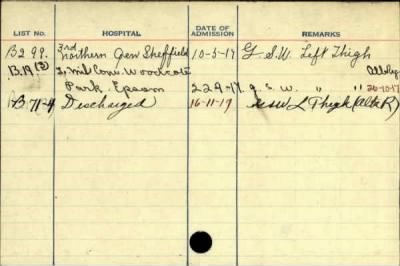 LIST NO. HOSPITAL DATE OF ADMISSION REMARKS
B299. 3rd Northern Gen Sheffield 10-5-17 G.S.W. Left Thigh
B19(3) Mil Con. Woodcote Alberty
Park. Epsom 22-9-17. g.s.w. " " 26-10-17
B.71-4 Discharged 16-11-17 GSW L Thigh (Alta R)